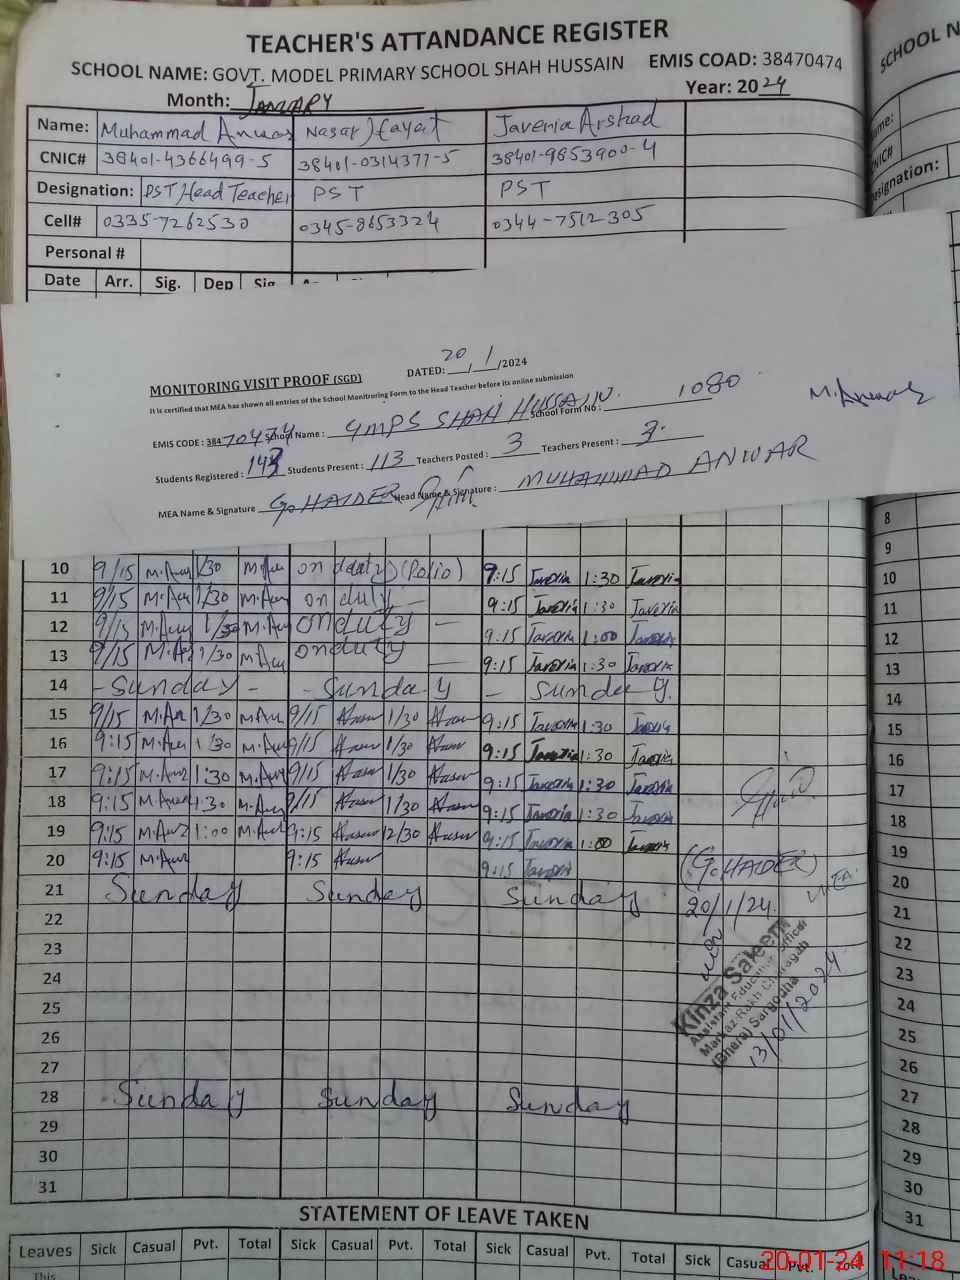 TEACHER'S ATTANDANCE REGISTER
SCHOOL NAME: GOVT. MODEL PRIMARY SCHOOL SHAH HUSSAIN EMIS COAD: 38470474
Month: JANUARY Year: 2024
Name: Muhammad Anwar Nasar Hayat Javeria Arshad
CNIC# 38401-4366499-5 38401-0314377-5 38401-9853900-4
Designation: PST Head Teacher PST PST
Cell# 0335-7262530 0345-8653324 0344-7512305
Personal #
Date Arr. Sig. Dep Sig
MONITORING VISIT PROOF (SGD) DATED: 20/1/2024
It is certified that MEA has shown all entries of the School Monitroring Form to the Head Teacher before its online submission
EMIS CODE : 38470474 School Name : GMPS SHAH HUSSAIN. School Form No : 1080
M. Anwar
Students Registered : 143 Students Present : 113 Teachers Posted : 3 Teachers Present : 3
MEA Name & Signature G. HAIDER Head Name & Signature : MUHAMMAD ANWAR
8
9
10 9/15 M.Anw 1/30 M.Anw on duty (Polio) 9:15 Javeria 1:30 Javeria 10
11 9/15 M.Anw 1/30 M.Anw on duty — 9:15 Javeria 1:30 Javeria 11
12 9/15 M.Anw 1/30 M.Anw on duty — 9:15 Javeria 1:00 Javeria 12
13 9/15 M.Anw 1/30 M.Anw on duty — 9:15 Javeria 1:30 Javeria 13
14 - Sunday - - Sunday - Sunday. 14
15 9/15 M.Anw 1/30 M.Anw 9/15 1/30 9:15 Javeria 1:30 Javeria 15
16 9:15 M.Anw 1/30 M.Anw 9/15 1/30 9:15 Javeria 1:30 Javeria 16
17 9:15 M.Anw 1:30 M.Anw 9/15 1/30 9:15 Javeria 1:30 Javeria 17
18 9:15 M.Anw 1:30 M.Anw 9/15 1/30 9:15 Javeria 1:30 Javeria 18
19 9:15 M.Anw 1:00 M.Anw 9:15 12/30 9:15 Javeria 1:00 Javeria 19
20 9:15 M.Anw 9:15 9:15 Javeria (G. HAIDER) MEA 20
21 Sunday Sunday Sunday 20/1/24. 21
22 22
23 23
24 24
25 25
26 26
27 27
28 Sunday Sunday Sunday 28
29 29
30 30
31 31
Kinza Saleem
Assistant Education Officer
(Bhera) Sargodha
13/01/2024
STATEMENT OF LEAVE TAKEN
Leaves Sick Casual Pvt. Total Sick Casual Pvt. Total Sick Casual Pvt. Total Sick Casual Pvt. Total
This
SCHOOL N
Name:
CNIC#
Designation:
20-01-24 11:18